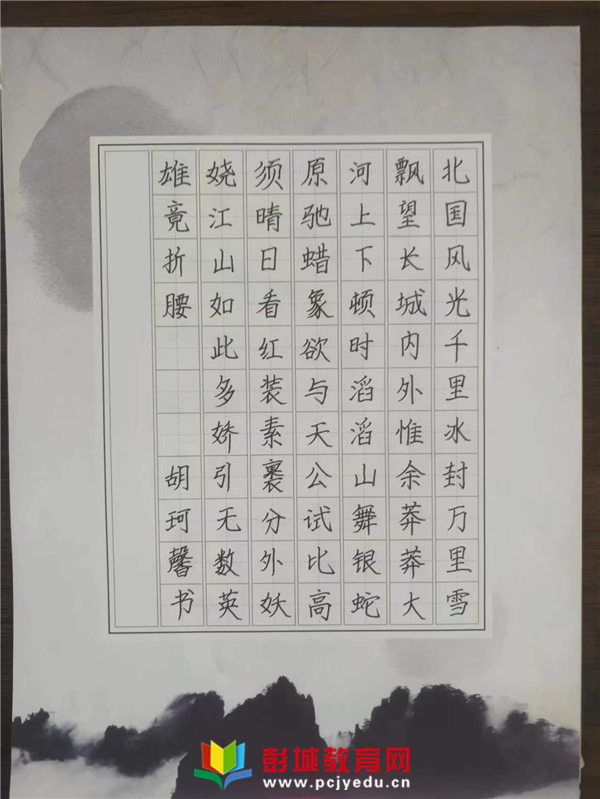 北国风光千里冰封万里雪
飘望长城内外惟余莽莽大
河上下顿时滔滔山舞银蛇
原驰蜡象欲与天公试比高
须晴日看红装素裹分外妖
娆江山如此多娇引无数英
雄竟折腰 胡珂馨书
彭城教育网
www.pcjyedu.cn